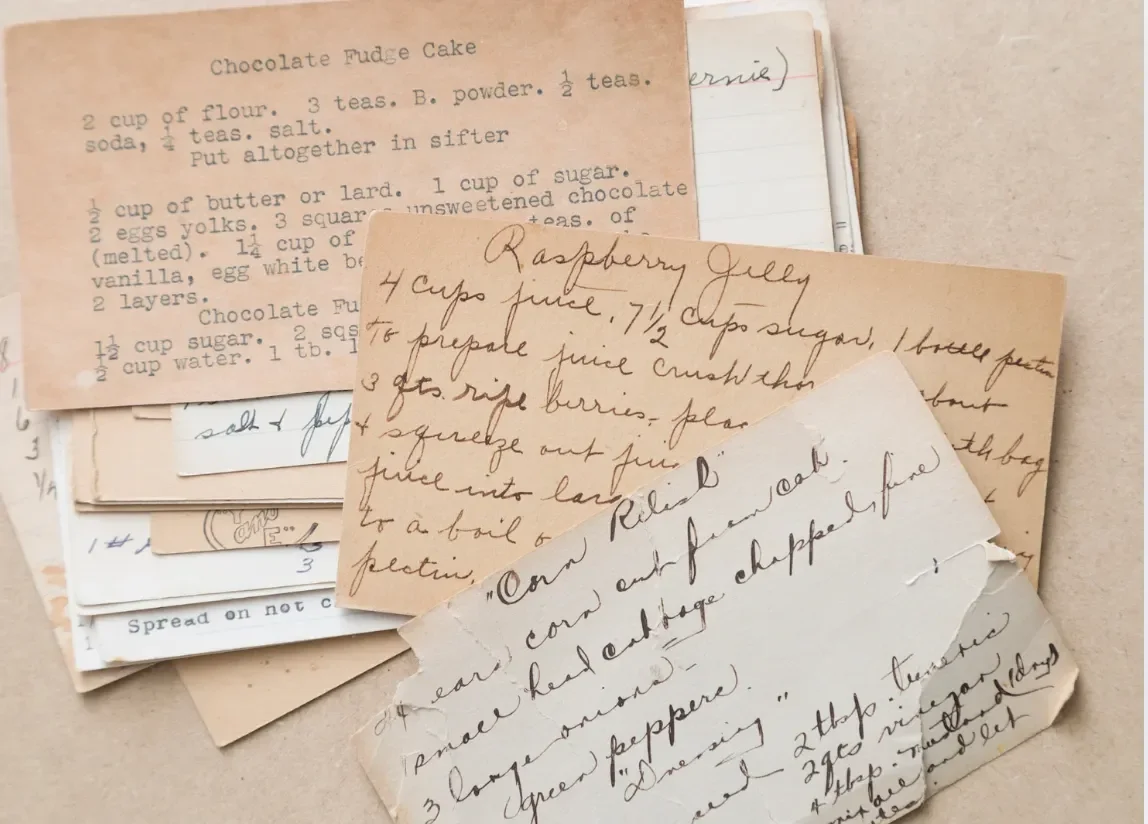 Chocolate Fudge Cake
2 cup of flour. 3 teas. B. powder. ½ teas.
soda, ¼ teas. salt.
Put altogether in sifter
½ cup of butter or lard. 1 cup of sugar.
2 eggs yolks. 3 squar s unsweetened chocolate
(melted). 1¼ cup of teas. of
vanilla, egg white be
2 layers.
Chocolate Fu
1½ cup sugar. 2 sqs
½ cup water. 1 tb. 1
ernie)
Raspberry Jelly
4 cups juice, 7½ cups sugar, 1 bottle pectin
to prepare juice crush thor about
3 qts. ripe berries, plac th bag
& squeeze out jui
juice into lar
to a boil
pectin.
salt & pep
8
1
6
3
1/4
and
E"
1 #
3
Spread on not c
"Corn Relish"
24 ears corn cut from cob.
1 small head cabbage chopped fine
3 large onions
green peppers.
"Dressing"
2 tbsp. tumeric
2 qts vinegar
4 tbsp. mustard (dry)
mix all and let